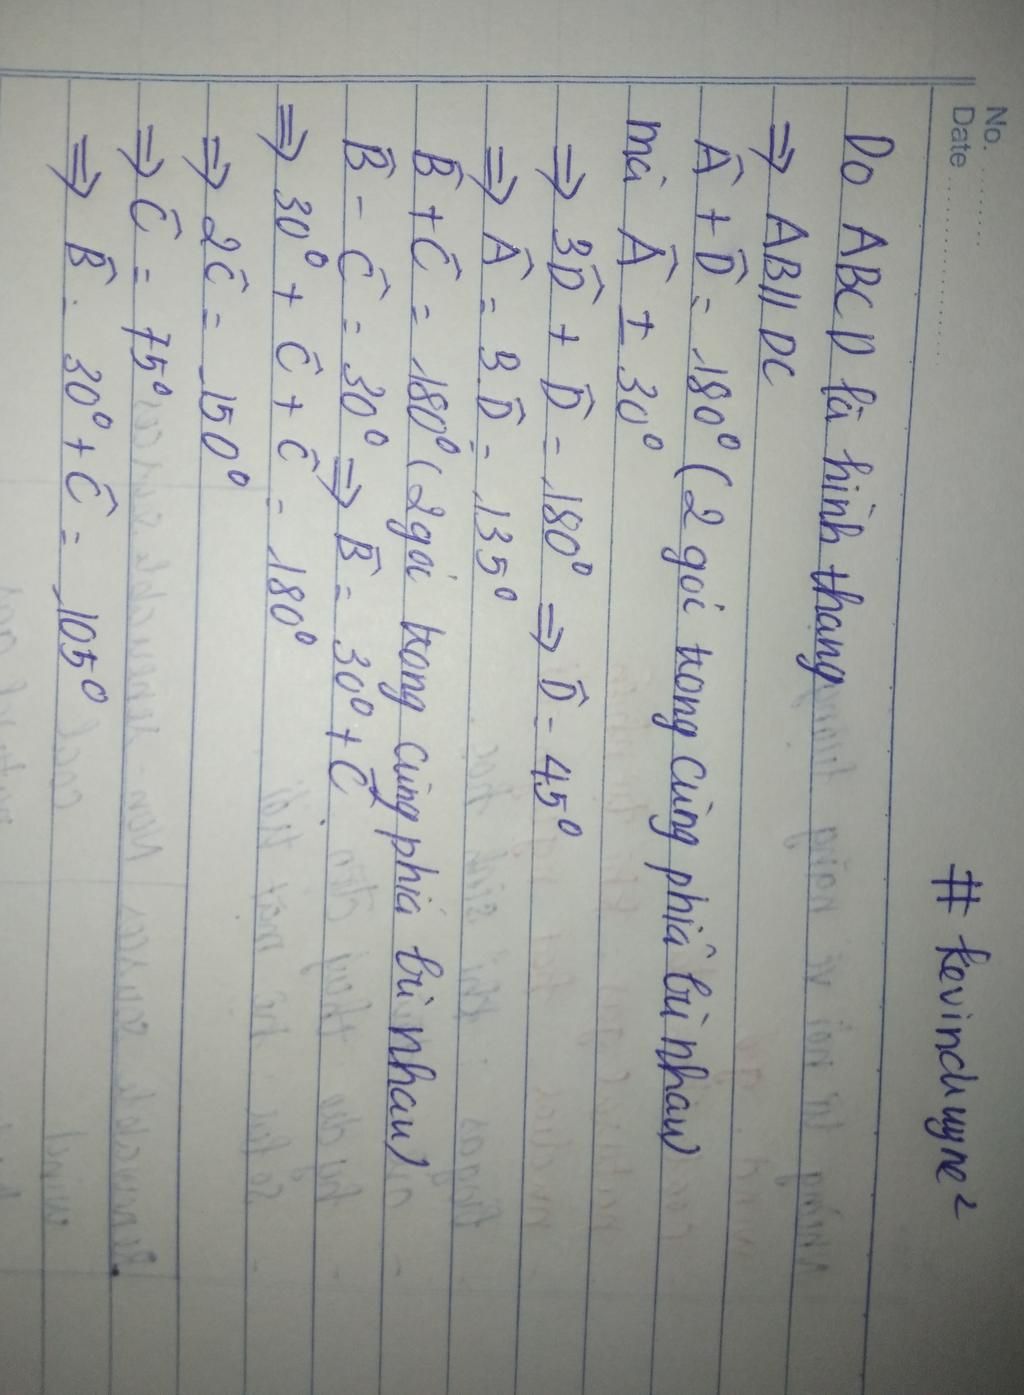 No.
Date
# kevinduyne²
Do ABCD là hình thang
⇒ AB // DC
Â + D̂ = 180° (2 gói trong cùng phía bù nhau)
mà Â ± 30°
⇒ 3D̂ + D̂ = 180° ⇒ D̂ = 45°
⇒ Â = 3.D̂ = 135°
B̂ + Ĉ = 180° (2 gói trong cùng phía bù nhau)
B̂ - Ĉ = 30° ⇒ B̂ = 30° + Ĉ
⇒ 30° + Ĉ + Ĉ = 180°
⇒ 2Ĉ = 150°
⇒ Ĉ = 75°
⇒ B̂ = 30° + Ĉ = 105°